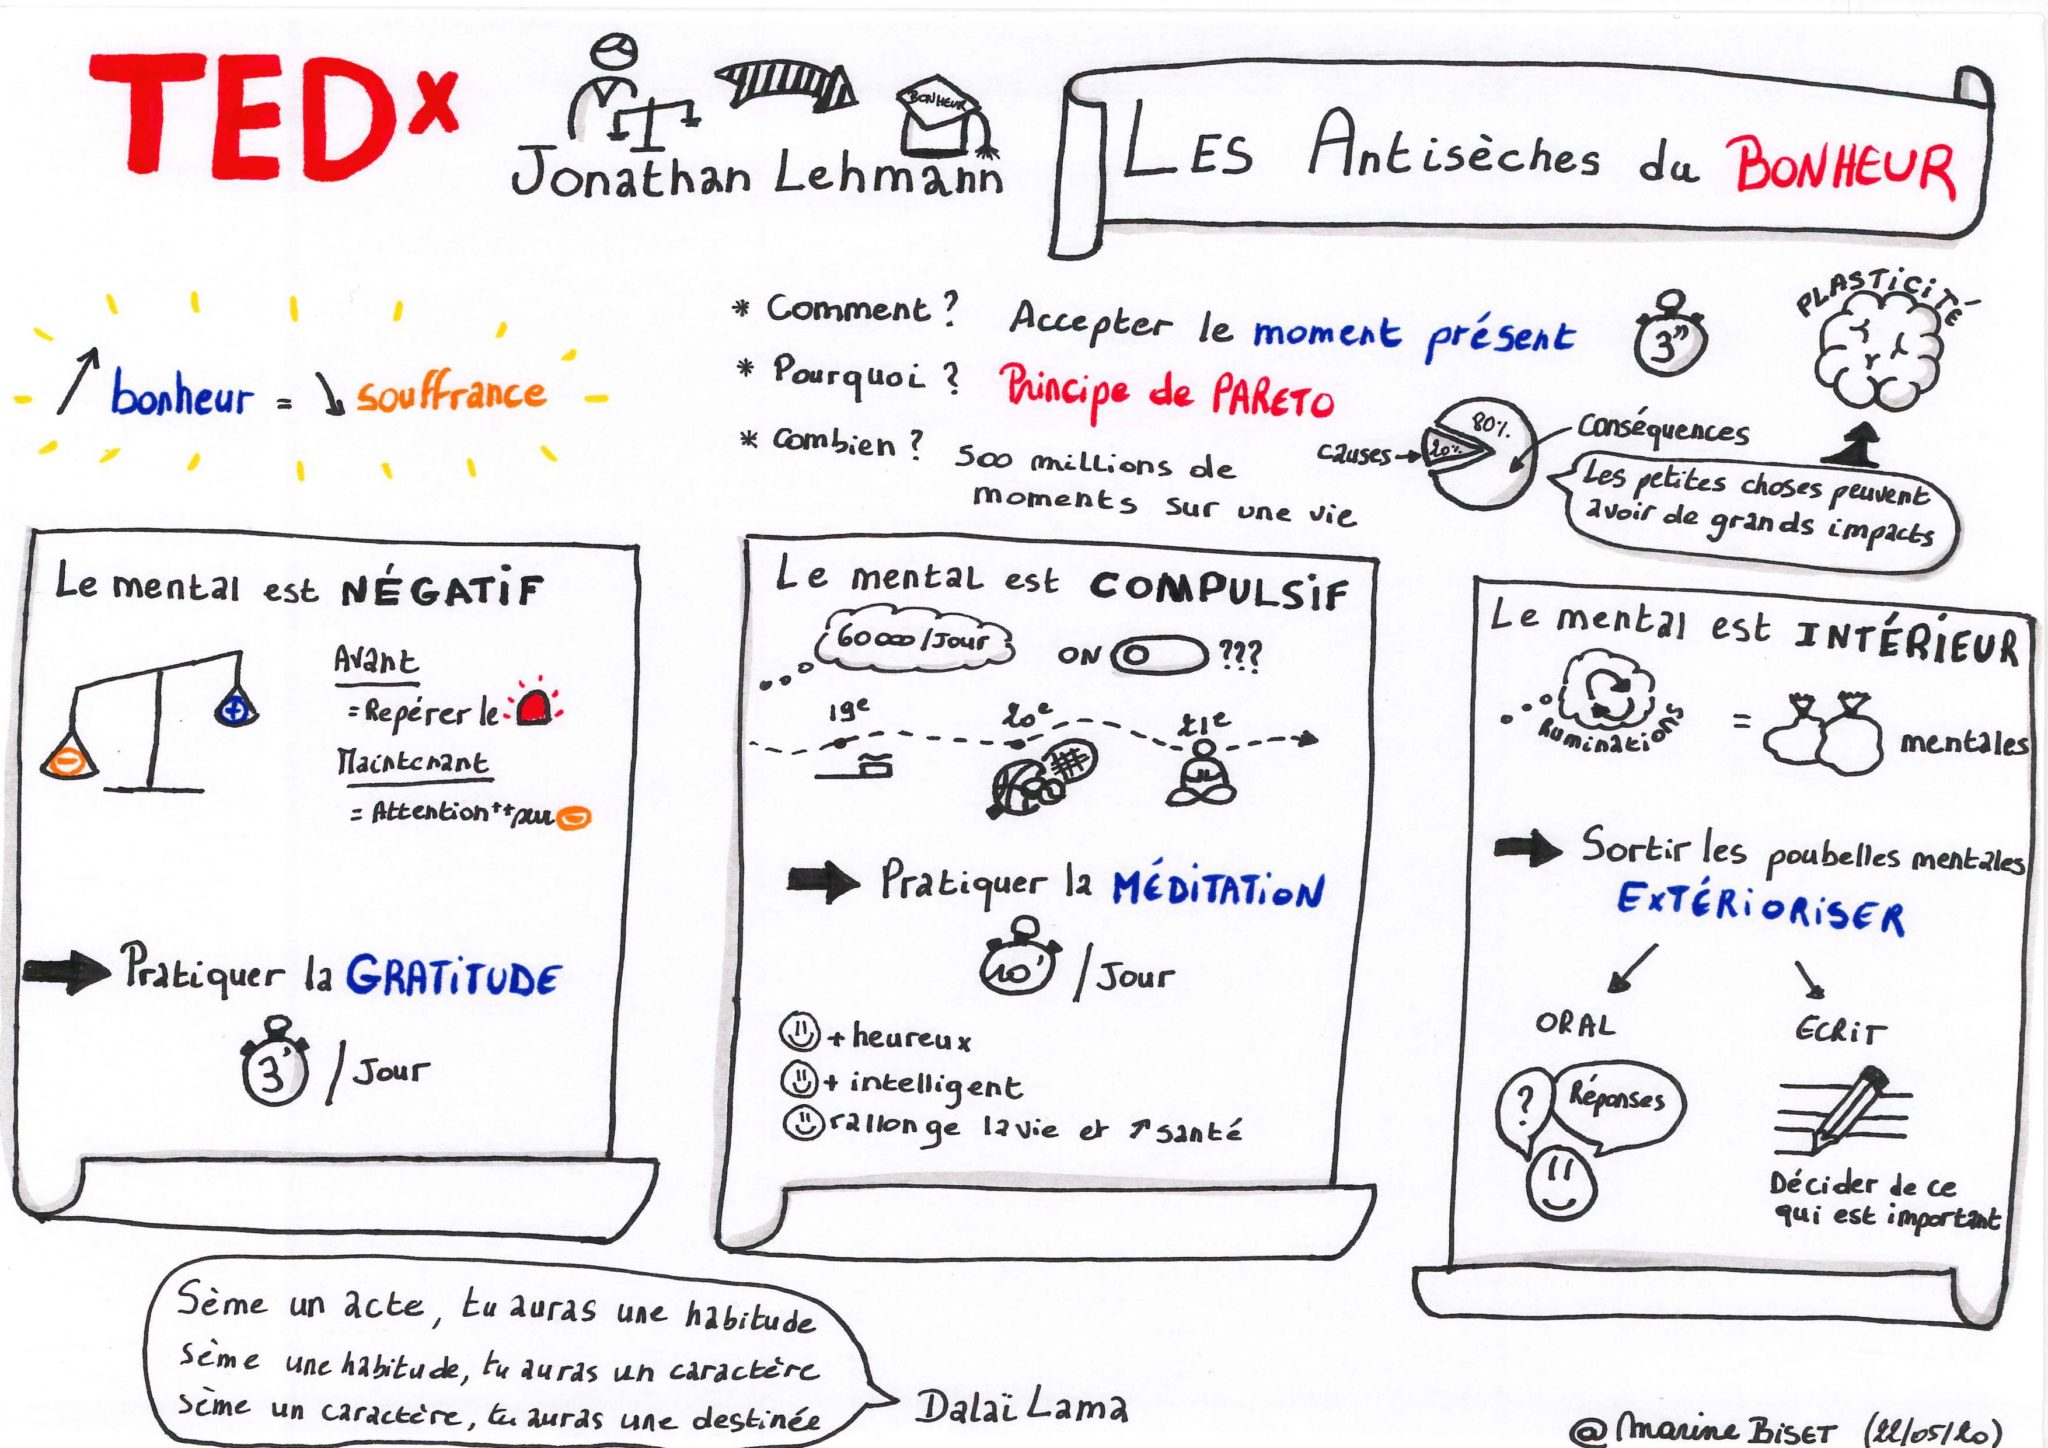 TEDx
BONHEUR
Jonathan Lehmann
LES Antisèches du BONHEUR
bonheur = souffrance
* Comment ? Accepter le moment présent
3"
PLASTICITÉ
* Pourquoi ? Principe de PARETO
* Combien ? 500 millions de
moments sur une vie
causes
20%
80%
conséquences
Les petites choses peuvent
avoir de grands impacts
Le mental est NÉGATIF
+
-
Avant
= Repérer le
Maintenant
= Attention++ pour -
Pratiquer la GRATITUDE
3' / Jour
Le mental est COMPULSIF
60000/Jour
ON ???
19e
20e
21e
Pratiquer la MÉDITATION
10' / Jour
+ heureux
+ intelligent
rallonge la vie et santé
Le mental est INTÉRIEUR
Ruminations
= mentales
Sortir les poubelles mentales
EXTÉRIORISER
ORAL
?
Réponses
ECRIT
Décider de ce
qui est important
Sème un acte, tu auras une habitude
sème une habitude, tu auras un caractère
sème un caractère, tu auras une destinée
Dalaï Lama
@Marine BISET (22/05/20)